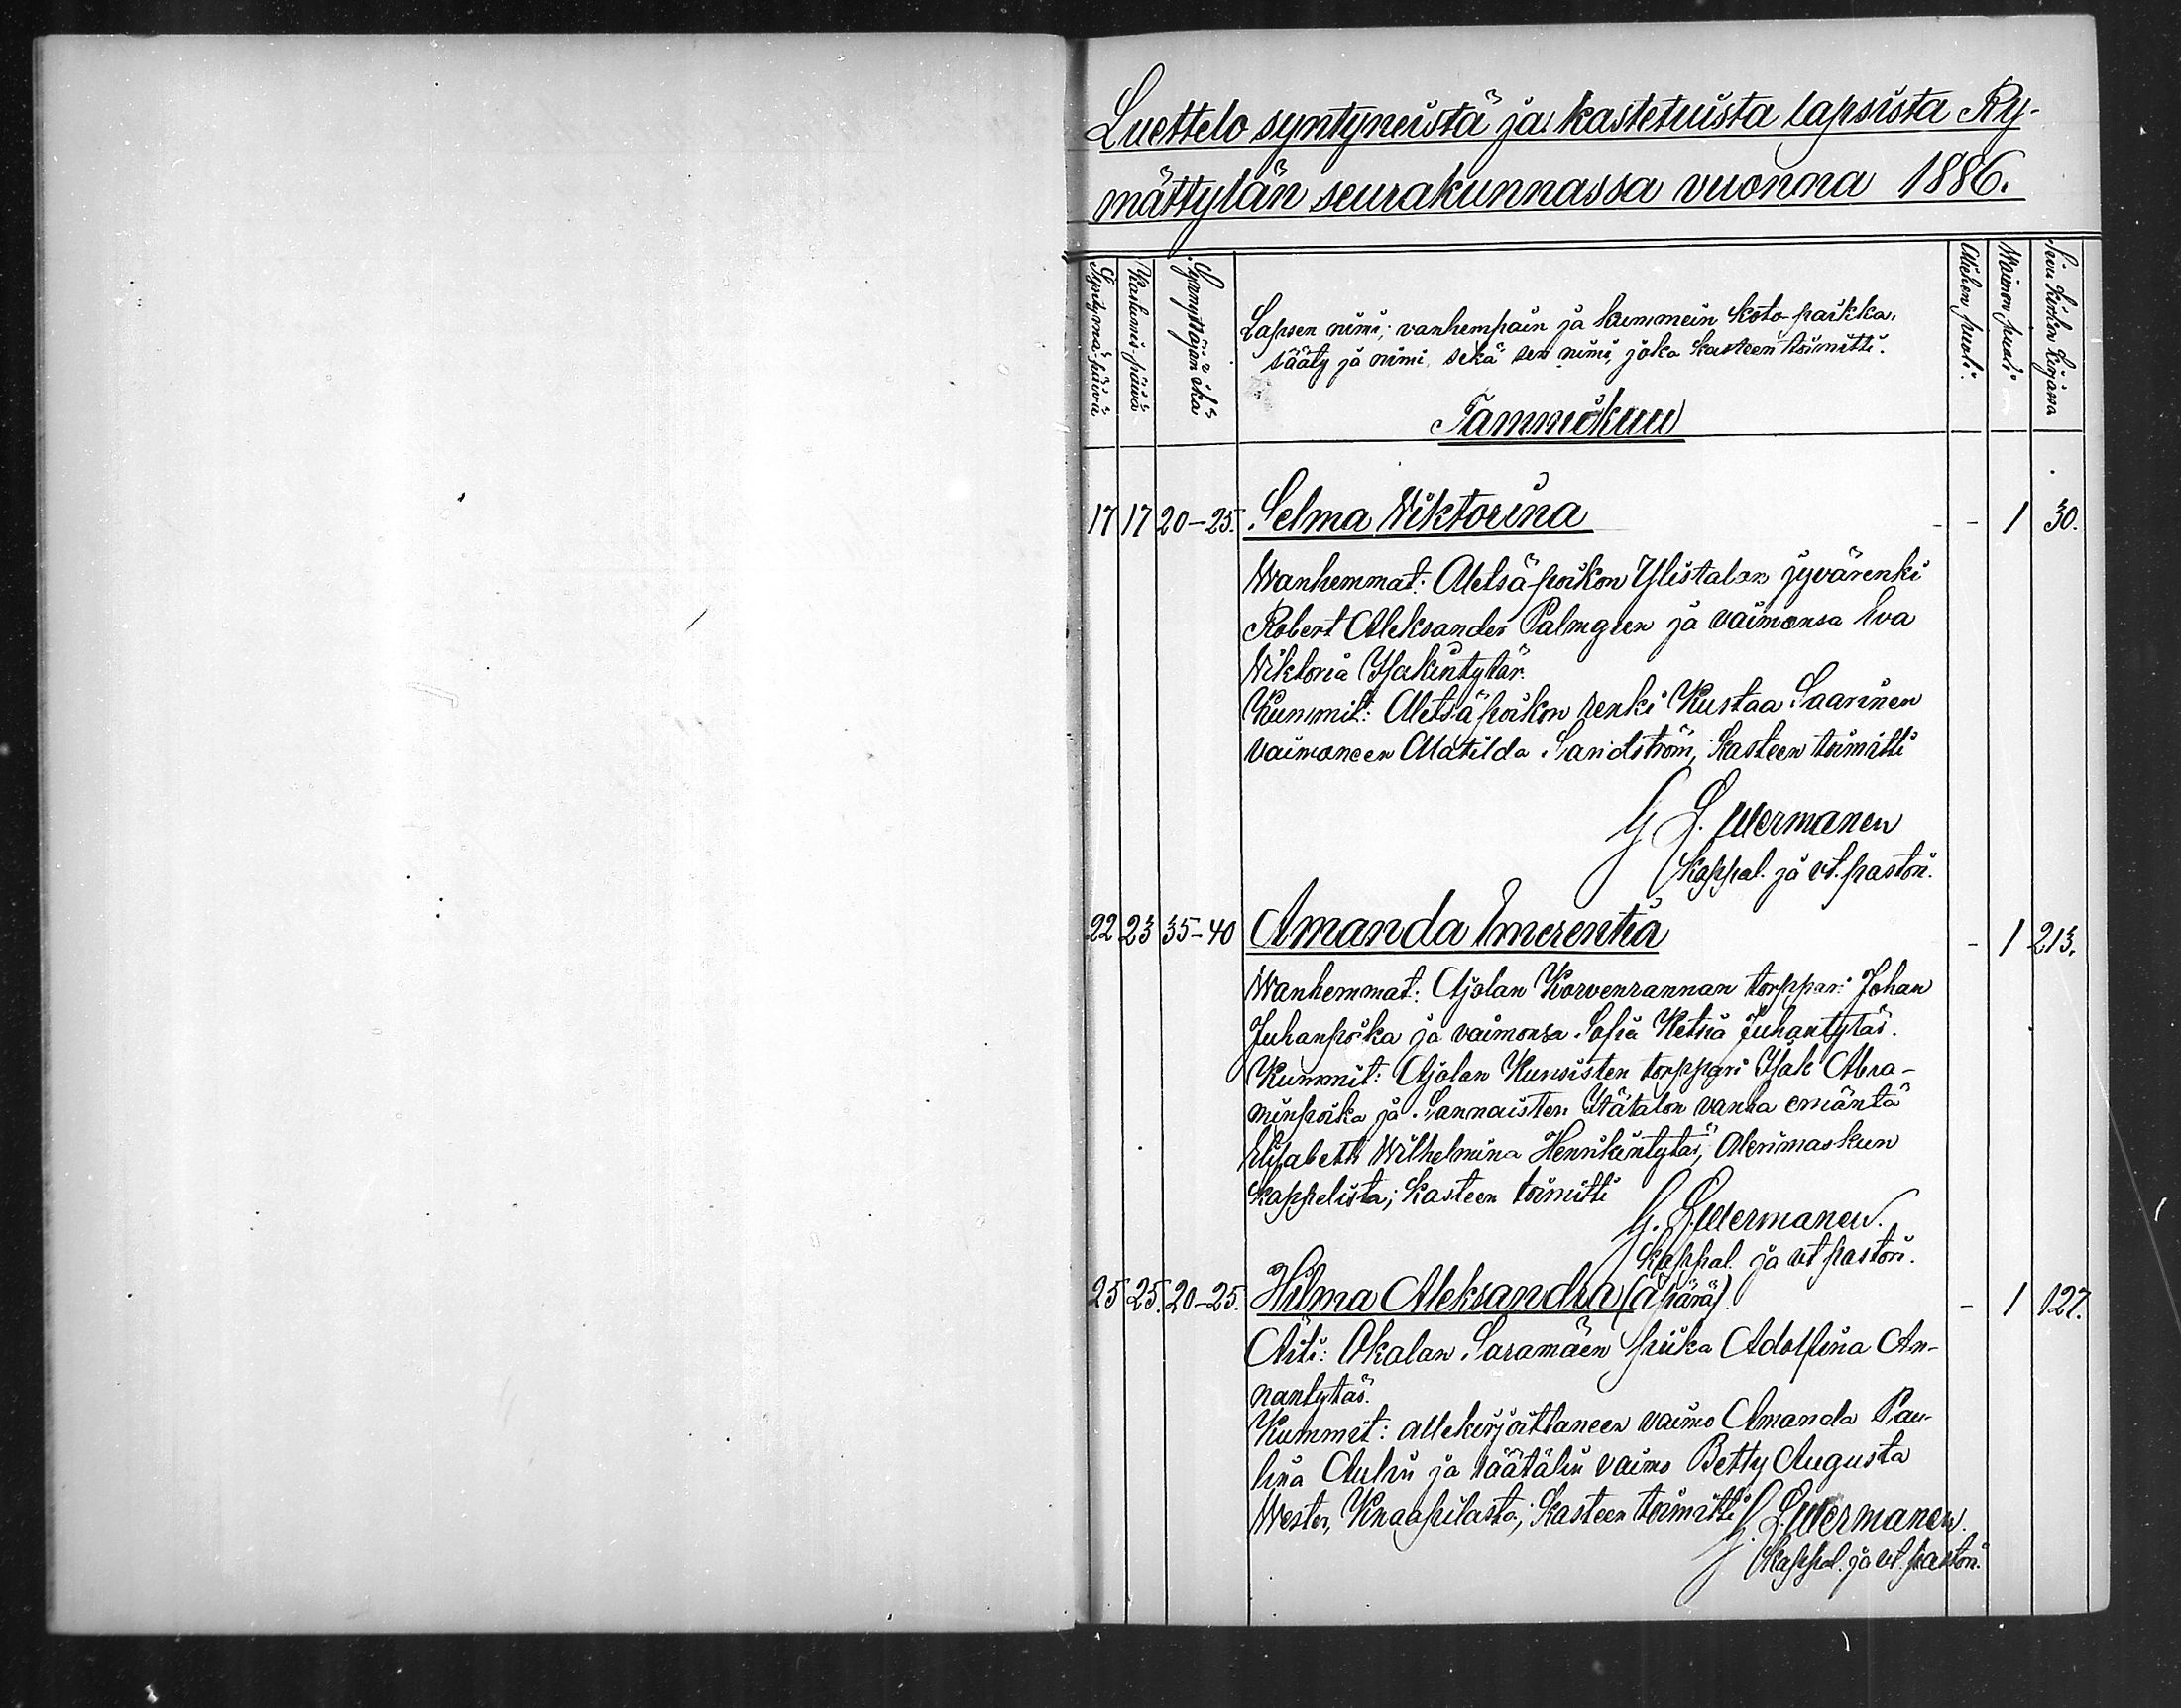 Luettelo syntyneistä ja kastetuista lapsista Ry-
mättylän seurakunnassa vuonna 1886.
Syntymä-päivä
Kastamis-päivä
Synnyttäjän ikä
Lapsen nimi; vanhempain ja kummein koto-paikka,
sääty ja nimi, sekä sen nimi, joka kasteen toimitti.
Miehen puoli.
Waimon puoli
Sivu kirkon kirjassa
Tammikuu
17 17 20-25. Selma Wiktoriina - - 1 30.
Wanhemmat: Metsäpoikon Ylistalon jyvärenki
Robert Aleksander Palmgren ja vaimonsa Eva
Wiktoria Isakintytär.
Kummit: Metsäpoikon renki Kustaa Saarinen
vaimoneen Matilda Sandström; kasteen toimitti
G. L.
kappal. ja vt. pastori.
22 23 35-40 Amanda Emerentia - 1 213.
Wanhemmat: Ajolan Korvenrannan torppari Johan
Juhanpoika ja vaimonsa Sofia Juhantytär.
Kummit: Ajolan torppari Isak Abra-
minpoika ja Sannaisten Itätalon vanha emäntä
Elisabeth Wilhelmina Henrikintytär, Merimaskun
kappelista; kasteen toimitti
G. L.
kappal. ja vt pastori.
25 25. 20-25. Hilma Aleksandra (äpärä). - 1 127.
Äiti: Saramäen piika Adolfina An-
nantytär.
Kummit: allekirjoittaneen vaimo Amanda Pau-
lina ja räätälin vaimo Betty Augusta
Wester, Knaapilasta; kasteen toimitti G. L.
kappal. ja vt. pastori.